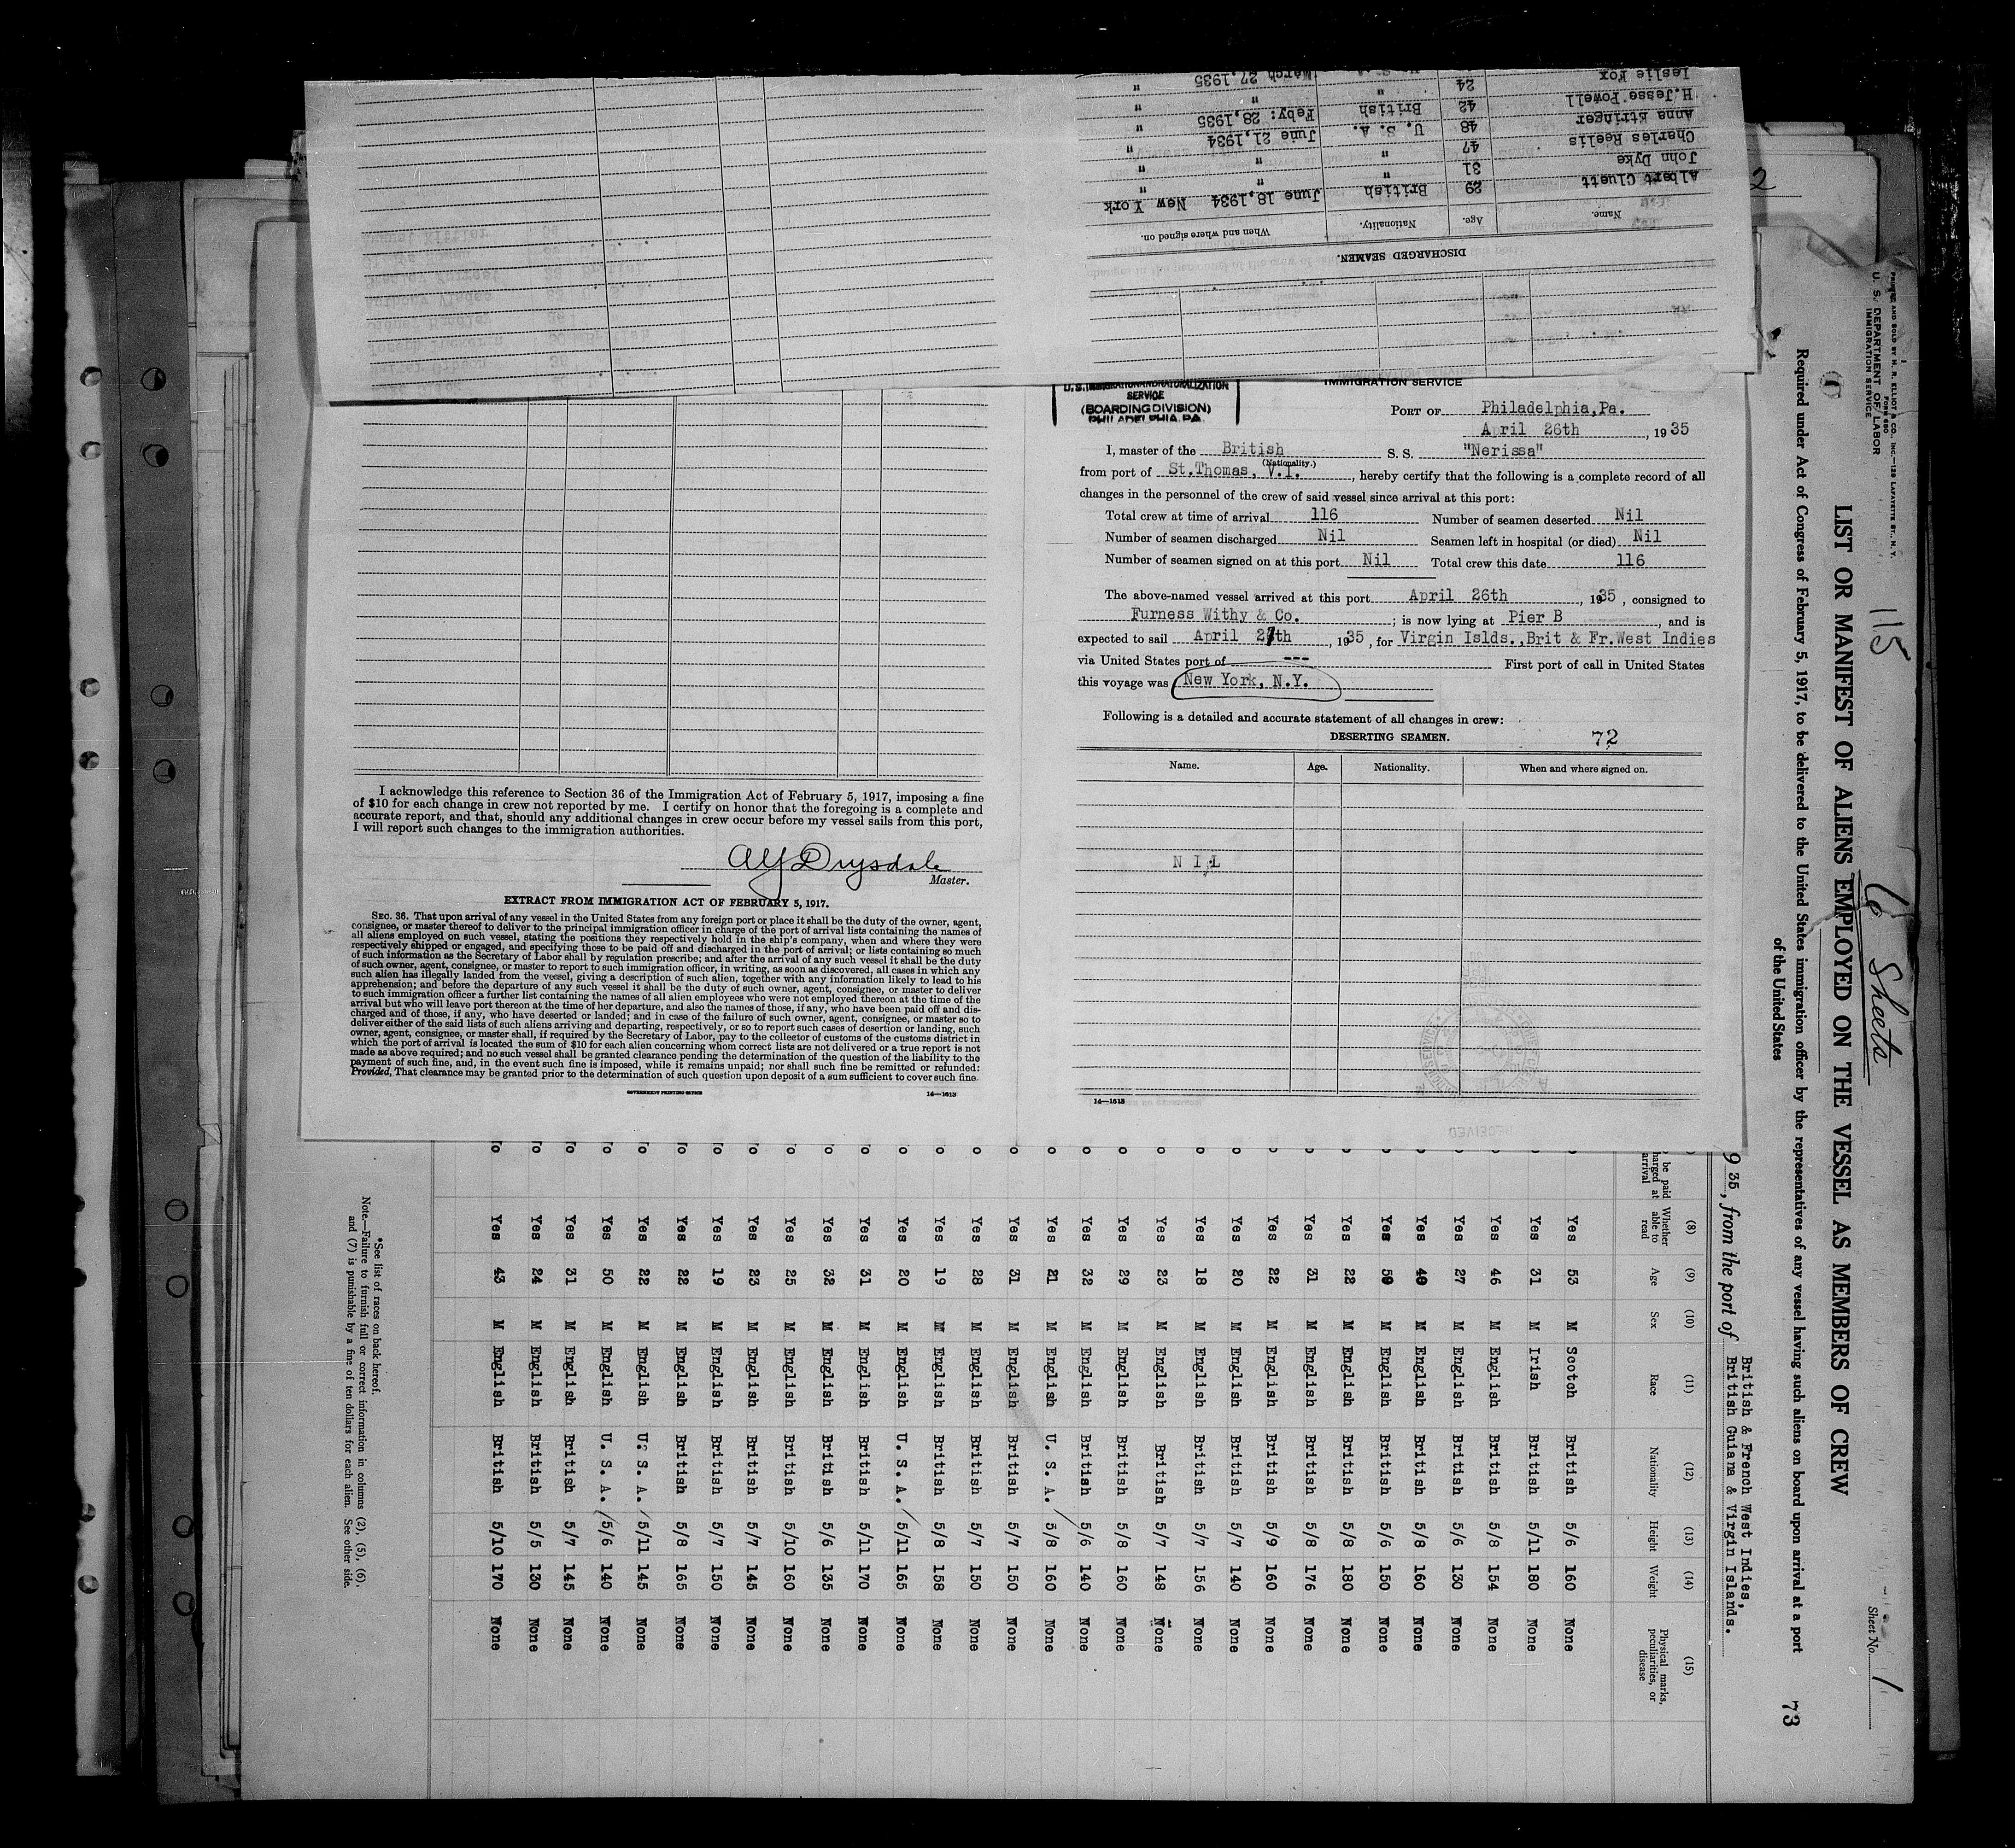 Leslie Fox 24 " U. S. A. March 27, 1935 "
H. Jesse Powell 42 British " "
Anna Etringer 48 U. S. A. Feby: 28, 1935 "
Charles Reelis 47 " June 21, 1934 "
John Dyke 31 " " "
Albert Cluett 29 British June 18, 1934 New York
Name. Age. Nationality. When and where signed on.
DISCHARGED SEAMEN.
2
U. S. IMMIGRATION AND NATURALIZATION
SERVICE
(BOARDING DIVISION)
PHILADELPHIA, PA.
IMMIGRATION SERVICE
PORT OF Philadelphia, Pa.
April 26th, 1935
I, master of the British S. S. "Nerissa"
(Nationality.)
from port of St. Thomas, V.I., hereby certify that the following is a complete record of all
changes in the personnel of the crew of said vessel since arrival at this port:
Total crew at time of arrival 116 Number of seamen deserted Nil
Number of seamen discharged Nil Seamen left in hospital (or died) Nil
Number of seamen signed on at this port Nil Total crew this date 116
The above-named vessel arrived at this port April 26th, 1935, consigned to
Furness Withy & Co.; is now lying at Pier B, and is
expected to sail April 27th, 1935, for Virgin Islds., Brit & Fr. West Indies
via United States port of --- First port of call in United States
this voyage was New York, N.Y.
Following is a detailed and accurate statement of all changes in crew:
DESERTING SEAMEN. 72
Name. Age. Nationality. When and where signed on.
N I L
14—1613
I acknowledge this reference to Section 36 of the Immigration Act of February 5, 1917, imposing a fine
of $10 for each change in crew not reported by me. I certify on honor that the foregoing is a complete and
accurate report, and that, should any additional changes in crew occur before my vessel sails from this port,
I will report such changes to the immigration authorities.
A Y Drysdale
Master.
EXTRACT FROM IMMIGRATION ACT OF FEBRUARY 5, 1917.
SEC. 36. That upon arrival of any vessel in the United States from any foreign port or place it shall be the duty of the owner, agent,
consignee, or master thereof to deliver to the principal immigration officer in charge of the port of arrival lists containing the names of
all aliens employed on such vessel, stating the positions they respectively hold in the ship's company, when and where they were
respectively shipped or engaged, and specifying those to be paid off and discharged in the port of arrival; or lists containing so much
of such information as the Secretary of Labor shall by regulation prescribe; and after the arrival of any such vessel it shall be the duty
of such owner, agent, consignee, or master to report to such immigration officer, in writing, as soon as discovered, all cases in which any
such alien has illegally landed from the vessel, giving a description of such alien, together with any information likely to lead to his
apprehension; and before the departure of any such vessel it shall be the duty of such owner, agent, consignee, or master to deliver
to such immigration officer a further list containing the names of all alien employees who were not employed thereon at the time of the
arrival but who will leave port thereon at the time of her departure, and also the names of those, if any, who have been paid off and dis-
charged and of those, if any, who have deserted or landed; and in case of the failure of such owner, agent, consignee, or master so to
deliver either of the said lists of such aliens arriving and departing, respectively, or so to report such cases of desertion or landing, such
owner, agent, consignee, or master shall, if required by the Secretary of Labor, pay to the collector of customs of the customs district in
which the port of arrival is located the sum of $10 for each alien concerning whom correct lists are not delivered or a true report is not
made as above required; and no such vessel shall be granted clearance pending the determination of the question of the liability to the
payment of such fine, and, in the event such fine is imposed, while it remains unpaid; nor shall such fine be remitted or refunded:
Provided, That clearance may be granted prior to the determination of such question upon deposit of a sum sufficient to cover such fine.
GOVERNMENT PRINTING OFFICE 14—1613
PRINTED AND SOLD BY H. R. ELLIOT & CO., INC.—128 LAFAYETTE ST., N. Y.
FORM 680
U. S. DEPARTMENT OF LABOR
IMMIGRATION SERVICE
115
6 Sheets
Sheet No. 1
LIST OR MANIFEST OF ALIENS EMPLOYED ON THE VESSEL AS MEMBERS OF CREW
Required under Act of Congress of February 5, 1917, to be delivered to the United States immigration officer by the representatives of any vessel having such aliens on board upon arrival at a port
of the United States
73
British & French West Indies,
935, from the port of British Guiana & Virgin Islands.
be paid (8) (9) (10) (11) (12) (13) (14) (15)
arged at arrival Whether able to read Age Sex Race Nationality Height Weight Physical marks, peculiarities, or disease
o Yes 53 M Scotch British 5/6 160 None
o Yes 31 M Irish British 5/11 180 None
o Yes 46 M English British 5/8 154 None
o Yes 27 M English British 5/6 130 None
o Yes 40 M English British 5/8 160 None
o Yes 50 M English British 5/6 150 None
o Yes 22 M English British 5/8 180 None
o Yes 31 M English British 5/8 176 None
o Yes 22 M English British 5/9 160 None
o Yes 20 M English British 5/7 140 None
o Yes 18 M English British 5/7 156 None
o Yes 23 M English British 5/7 148 None
o Yes 29 M English British 5/8 160 None
o Yes 32 M English British 5/6 140 None
o Yes 21 M English U. S. A. 5/8 160 None
o Yes 31 M English British 5/7 150 None
o Yes 28 M English British 5/7 150 None
o Yes 19 M English British 5/8 158 None
o Yes 20 M English U. S. A. 5/11 165 None
o Yes 31 M English British 5/11 170 None
o Yes 32 M English British 5/6 135 None
o Yes 25 M English British 5/10 160 None
o Yes 23 M English British 5/7 145 None
o Yes 19 M English British 5/7 150 None
o Yes 22 M English British 5/8 165 None
o Yes 22 M English U. S. A. 5/11 145 None
o Yes 50 M English U. S. A. 5/6 140 None
o Yes 31 M English British 5/7 145 None
o Yes 24 M English British 5/5 130 None
o Yes 43 M English British 5/10 170 None
*See list of races on back hereof.
Note.—Failure to furnish full or correct information in columns (2), (5), (6),
and (7) is punishable by a fine of ten dollars for each alien. See other side.